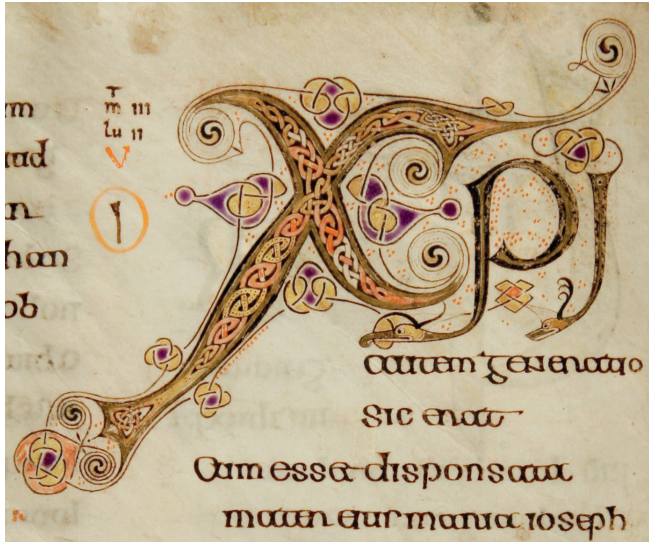 um
aud
an
han
ob
m III
lu II
V
I
XPI
autem generatio
sic erat
Cum esset disponsata
mater eius maria ioseph